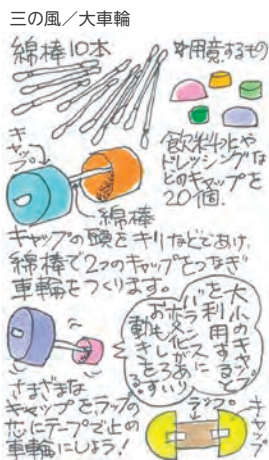 三の風/大車輪
綿棒10本
用意するもの
飲料水や
ドレッシングな
どのキャップを
20個.
キャップ
綿棒
キャップの頭をキリなどであけ.
綿棒で2つのキャップをつなぎ
車輪をつくります。
大小のキャップ
を利用すると
バランスに
おもしろい
動きをする
さまざまな
キャップをラップの
芯にテープで止め
車輪にしよう!
ラップ
キャップ